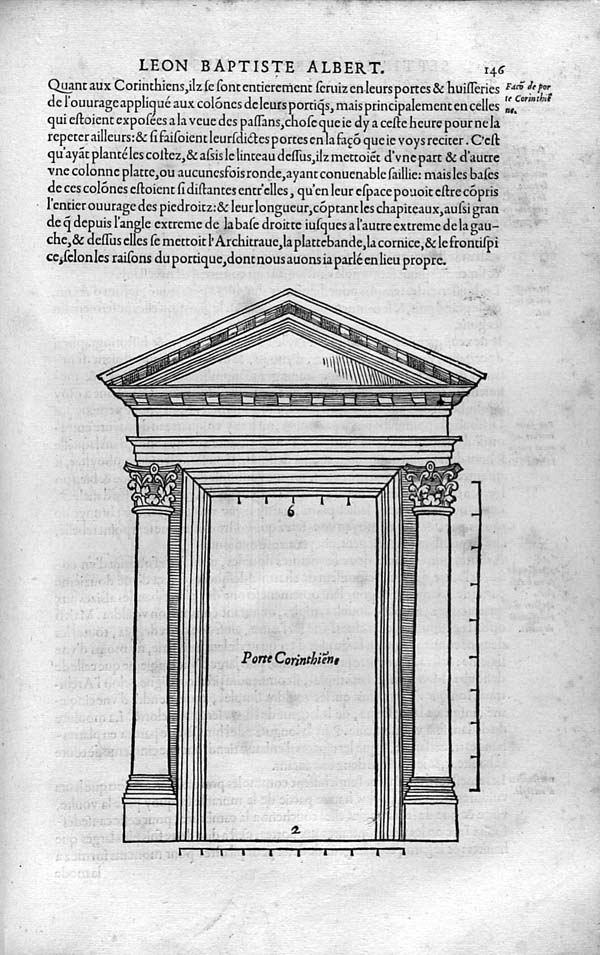 LEON BAPTISTE ALBERT. 146
Quant aux Corinthiens, ilz se sont entierement seruiz en leurs portes & huisseries
de l'ouurage appliqué aux colónes de leurs portiqs, mais principalement en celles
qui estoient exposées a la veue des passans, chose que ie dy a ceste heure pour ne la
repeter ailleurs: & si faisoient leursdictes portes en la façõ que ie voys reciter. C'est
qu'ayãt planté les costez, & assis le linteau dessus, ilz mettoiẽt d'vne part & d'autre
vne colonne platte, ou aucunesfois ronde, ayant conuenable saillie: mais les bases
de ces colónes estoient si distantes entr'elles, qu'en leur espace pouoit estre cópris
l'entier ouurage des piedroitz: & leur longueur, cóptant les chapiteaux, aussi gran
de q̃ depuis l'angle extreme de la base droitte iusques a l'autre extreme de la gau-
che, & dessus elles se mettoit l'Architraue, la plattebande, la cornice, & le frontispi
ce, selon les raisons du portique, dont nous auons ia parlé en lieu propre.
Facõ de por
te Corinthiẽ
ne.
6
Porte Corinthiẽne
2